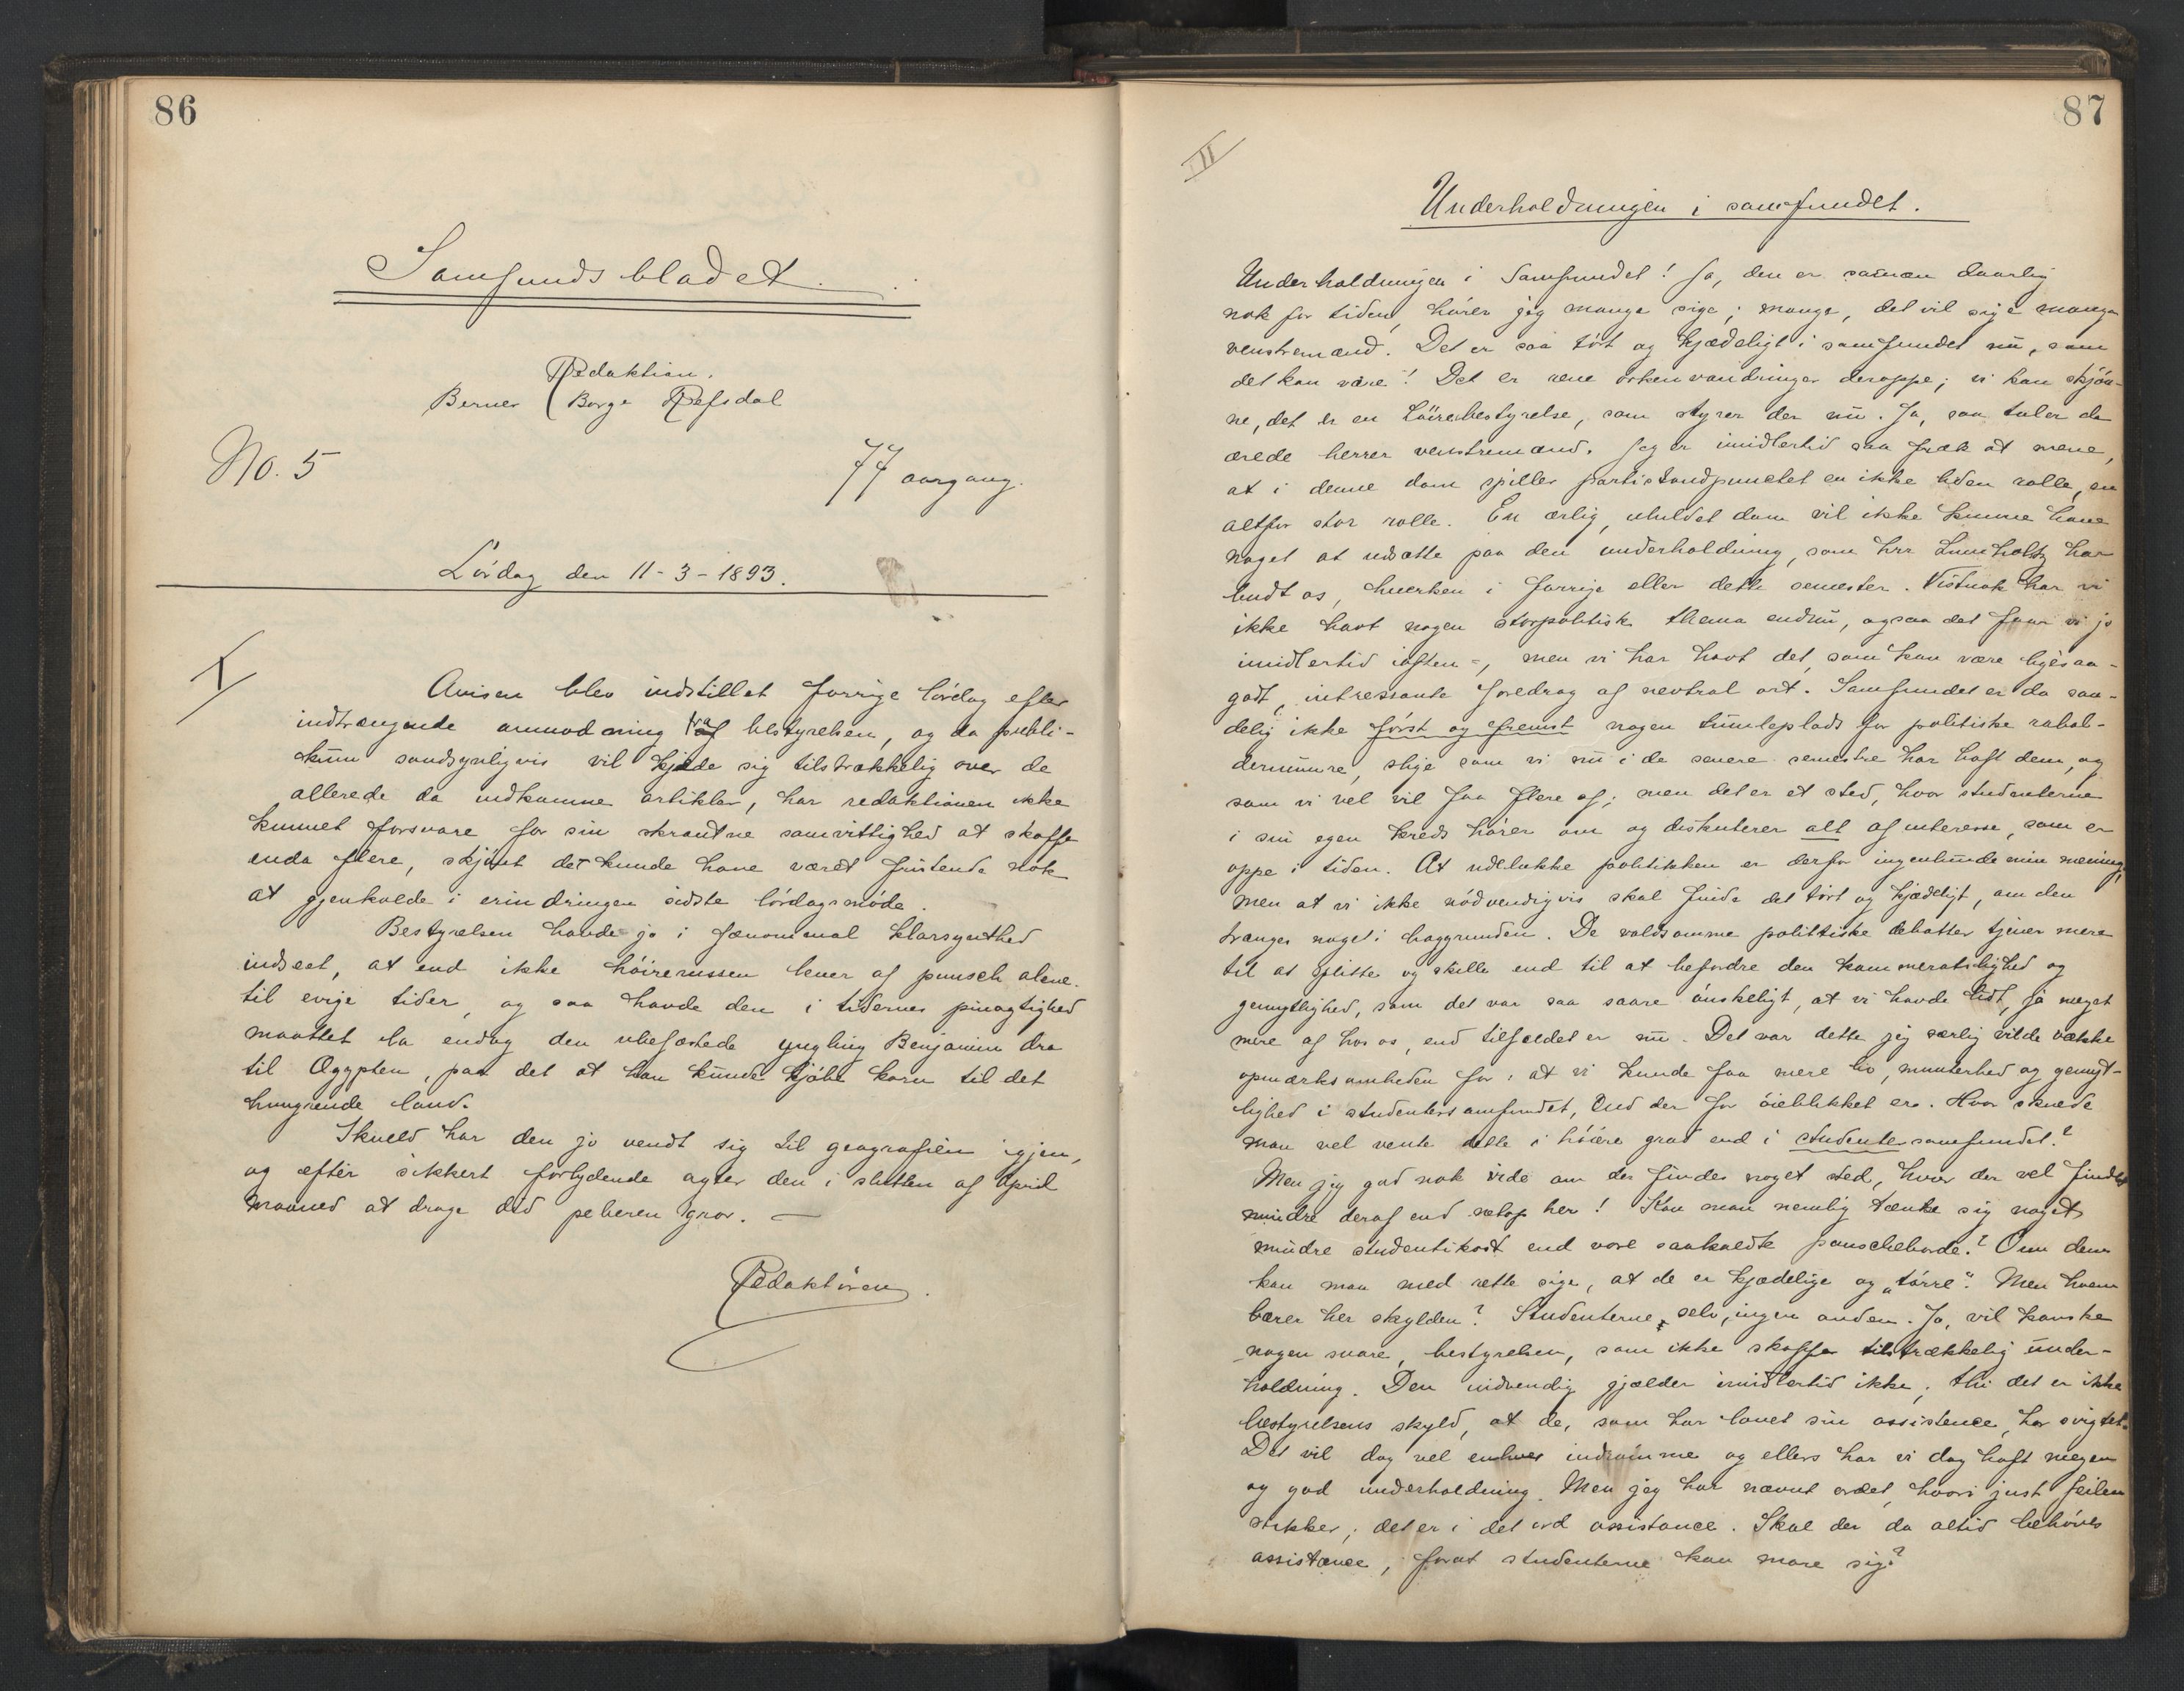 86
Samfundsbladet.
Redaktion.
Berner Borge Refsdal
No. 5
77 aargang.
Lördag den 11-3-1893.
I
Avisen blev indstillet forrige lördag efter
indtrængende anmodning fra bestyrelsen, og da publi-
kum sandsynligvis vil kjede sig tilstrækkelig over de
allerede da indkomne artikler, har redaktionen ikke
kunnet forsvare for sin skrantne samvittighed at skaffe
enda flere, skjönt det kunde have været fristende nok
at gjenkalde i erindringen sidste lördagsmöde.
Bestyrelsen havde jo i fænomenal klarsynthed
indseet, at end ikke höirerussen lever af punsch alene
til evige tider, og saa havde den i tidernes pinagtighed
maattet la endog den ubefæstede yngling Benjamin dra
til Ægypten, paa det at han kunde kjöbe korn til det
hungrende land.
Ikveld har den jo vendt sig til geografien igjen,
og efter sikkert forlydende agter den i slutten af April
maaned at drage did peberen gror. —
Redaktören.
87
II
Underholdningen i samfundet.
Underholdningen i Samfundet! Ja, den er saamæn daarlig
nok for tiden, hörer jeg mange sige; mange, det vil sige mange
venstremænd. Det er saa tört og kjædeligt i samfundet nu, som
det kan være! Det er rene örkenvandringer deroppe; vi kan skjön-
ne, det er en höirebestyrelse, som styrer der nu. Ja, saa taler de
ærede herrer venstremænd. Jeg er imidlertid saa fræk at mene,
at i denne dom spiller partistandpunctet en ikke liden rolle, en
altfor stor rolle. En ærlig, uhildet dom vil ikke kunne have
noget at udsætte paa den underholdning, som hrr Lumholtz har
budt os, hverken i forrige eller dette semester. Vistnok har vi
ikke havt nogen storpolitisk thema endnu, ogsaa det faar vi jo
imidlertid iaften -, men vi har havt det, som kan være ligesaa-
godt, intressante foredrag af nevtral art. Samfundet er da san-
delig ikke först og fremst nogen tumleplads for politiske rabal-
dermöre, slige som vi nu i de senere semestre har haft dem, og
som vi vel vil faa flere af; men det er et sted, hvor studenterne
i sin egen kreds hörer om og diskuterer alt af interesse, som er
oppe i tiden. At udelukke politikken er derfor ingenlunde min mening,
men at vi ikke nödvendigvis skal finde det tört og kjædeligt, om den
trænges noget i baggrunden. De voldsomme politiske debatter tjener mere
til at splitte og skille end til at befordre den kammeratslighed og
gemytlighed, som det var saa saare önskeligt, at vi havde lidt, ja meget
mere af hos os, end tilfældet er nu. Det var dette jeg særlig vilde vække
opmærksomheden for, at vi kunde faa mere liv, munterhed og gemyt-
lighed i studentersamfundet, end der for öieblikket er. Hvor skulde
man vel vente dette i höiere grad end i studentersamfundet?
Men jeg gad nok vide om der findes noget sted, hvor der vel findes
mindre deraf end netop her! Kan man nemlig tænke sig noget
mindre studentikost end vore saakaldte punscheborde? Om dem
kan man med rette sige, at de er kjædelige og "törre". Men hvem
bærer her skylden? Studenterne selv, ingen anden. Ja, vil kanske
nogen svare, bestyrelsen, som ikke skaffer tilstrækkelig under-
holdning. Den indvending gjælder imidlertid ikke; thi det er ikke
bestyrelsens skyld, at de, som har lovet sin assistence, har svigtet.
Det vil dog vel enhver indrömme og ellers har vi dog haft megen
og god underholdning. Men jeg har nævnt ordet, hvori just feilen
stikker; det er i det ord assistance. Skal der da altid behöves
assistance, forat studenterne kan more sig?